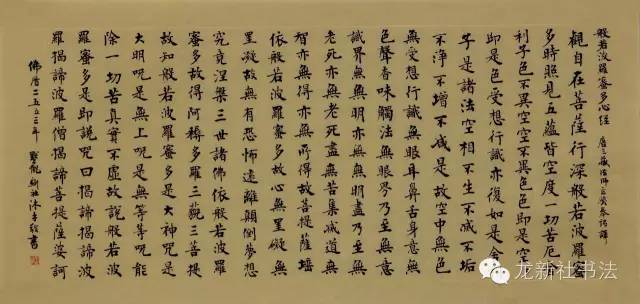 般若波羅蜜多心經 唐三藏法師玄奘奉詔譯
觀自在菩薩行深般若波羅蜜
多時照見五蘊皆空度一切苦厄舍
利子色不異空空不異色色即是空空
即是色受想行識亦復如是舍利
子是諸法空相不生不滅不垢
不淨不增不減是故空中無色
無受想行識無眼耳鼻舌身意無
色聲香味觸法無眼界乃至無意
識界無無明亦無無明盡乃至無
老死亦無老死盡無苦集滅道無
智亦無得以無所得故菩提薩埵
依般若波羅蜜多故心無罣礙無
罣礙故無有恐怖遠離顛倒夢想
究竟涅槃三世諸佛依般若波羅
蜜多故得阿耨多羅三藐三菩提
故知般若波羅蜜多是大神咒是
大明咒是無上咒是無等等咒能
除一切苦真實不虛故說般若波
羅蜜多咒即說咒曰揭諦揭諦波
羅揭諦波羅僧揭諦菩提薩婆訶
佛曆二五五三年 沐手敬書
龙新社书法